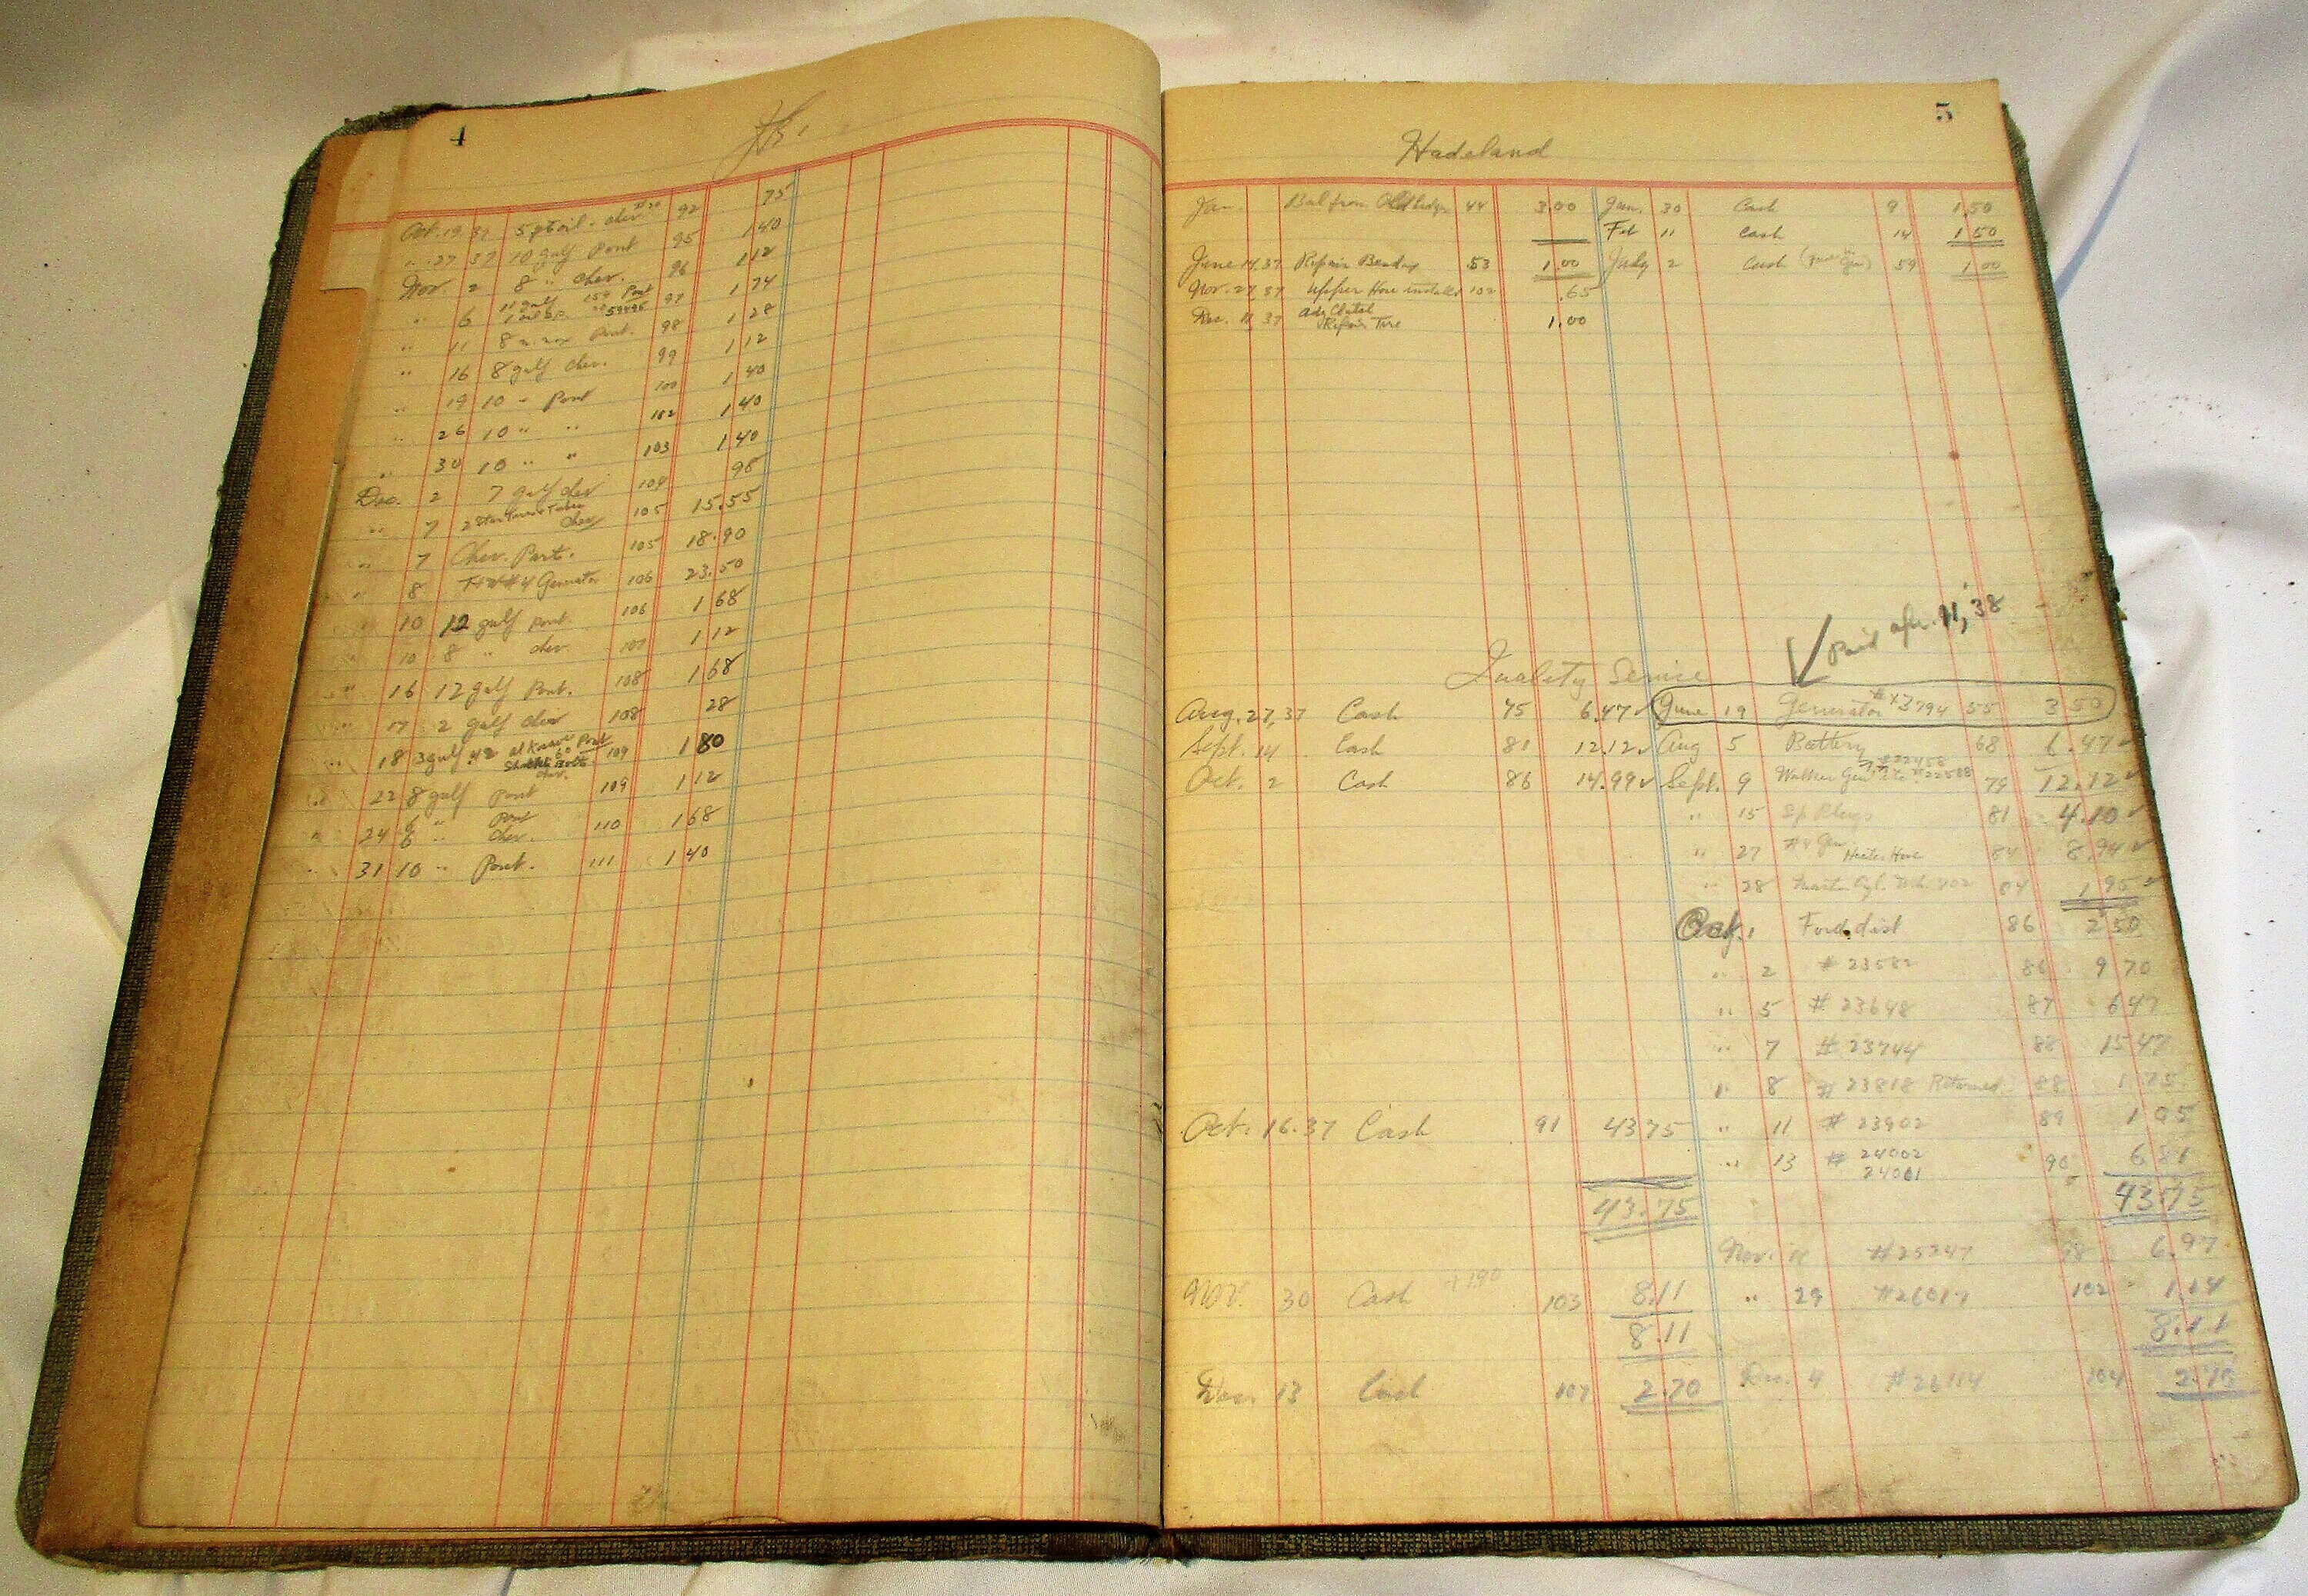 4
Oct. 19 37 5 pt oil - chev #20 92 75
" 27 37 10 gulf Pont 95 1 40
Nov. 2 8 " chev. 96 1 12
" 6 11 gulf 154 Pont 97 1 74
" 11 8 Pont. 98 1 28
" 16 8 gulf chev. 99 1 12
" 19 10 " Pont 100 1 40
" 26 10 " " 102 1 40
" 30 10 " " 103 1 40
Dec. 2 7 gulf chev 104 98
" 7 2 chev 105 15.55
" 7 Chev. Part. 105 18.90
" 8 #4 Generator 106 23.50
" 10 12 gulf Pont. 106 1 68
" 10 8 " chev. 107 1 12
" 16 12 gulf Pont. 108 1 68
" 17 2 gulf chev 108 28
" 18 3 gulf .42 Pont 60 Bolt chev. 109 1 80
" 22 8 gulf Pont 109 1 12
" 24 6 " Pont
6 " chev. 110 1 68
" 31 10 " Pont. 111 1 40
5
Hadeland
Jan. Bal from Old Ledger 44 3.00 Jan. 30 Cash 9 1.50
Feb 11 Cash 14 1 50
June 14, 37 Repair Bendix 53 1.00 July 2 Cash 59 1.00
Nov. 27, 37 Upper Hose installed 102 .65
Dec. 11, 37 adj Clutch
Repair Tire 1.00
Paid apr. 11, '38
Quality Service
Aug. 27, 37 Cash 75 6.47 June 19 Generator #X3794 55 3 50
Sept. 14 Cash 81 12.12 Aug 5 Battery 68 6.47
Oct. 2 Cash 86 14.99 Sept. 9 Walker Gen #22458 #22588 79 12.12
" 15 Sp Plugs 81 4.10
" 27 #4 Gen Heater Hose 84 8.94
" 28 Master Cyl. 84 1 95
Oct. 1 Ford dist 86 2 50
" 2 # 23582 86 9 70
" 5 # 23648 87 6 47
" 7 # 23744 88 15 47
" 8 # 23818 Returned 88 1 75
Oct. 16. 37 Cash 91 43 75 " 11 # 23902 89 1 05
" 13 # 24002
24001 90 6 81
43.75 43.75
Nov. 11 #25247 98 6.97
Nov. 30 Cash 103 8.11 " 29 102 1.14
8.11 8.11
Dec. 13 Cash 107 2.70 Dec. 4 #26114 104 2.70